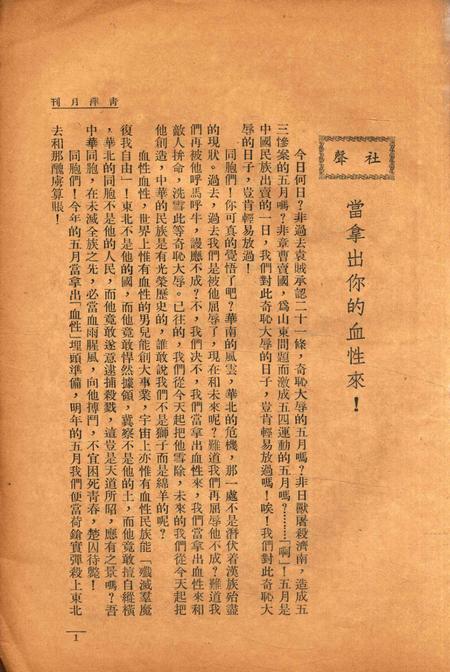 青萍月刊
社聲
當拿出你的血性來！
今日何日？非過去袁賊承認二十一條，奇恥大辱的五月嗎？非日獸屠殺濟南，造成五
三慘案的五月嗎？非章曹賣國，爲山東問題而激成五四運動的五月嗎？………「啊」！五月是
中國民族出賣的一日，我們對此奇恥大辱的日子，豈肯輕易放過嗎！唉！我們對此奇恥大
辱的日子，豈肯輕易放過！
同胞們！你可真的覺悟了吧？華南的風雲，華北的危機，那一處不是潛伏着漢族殆盡
的現狀。過去，過去我們是被他屈辱了，現在和未來呢？難道我們再屈辱他不成？難道我
們再被他呼馬呼牛，謾應不成？不，我們決不，我們當拿出血性來，我們當拿出血性來和
敵人拚命，洗雪此等奇恥大辱。已往的，我們從今天起把他雪除，未來的我們從今天起把
他創造，中華的民族是有光榮歷史的，誰敢說我們不是獅子而是綿羊的呢？
血性血性，世界上惟有血性的男兒能創大事業，宇宙上亦惟有血性民族能「殲滅羣魔
復我自由」！東北不是他的國，而他竟敢悍然據領，冀察不是他的土，而他竟敢擅自縱橫
，華北的同胞不是他的人民，而他竟敢遂意逮捕殺戮，這豈是天道所昭，應有之景嗎？吾
中華同胞，在未滅全族之先，必當血雨腥風，向他搏鬥，不宜困死青春，楚囚待斃！
同胞們！今年的五月當拿出「血性」埋頭準備，明年的五月我們便當荷鎗實彈殺上東北
去和那醜虜算賬！
1